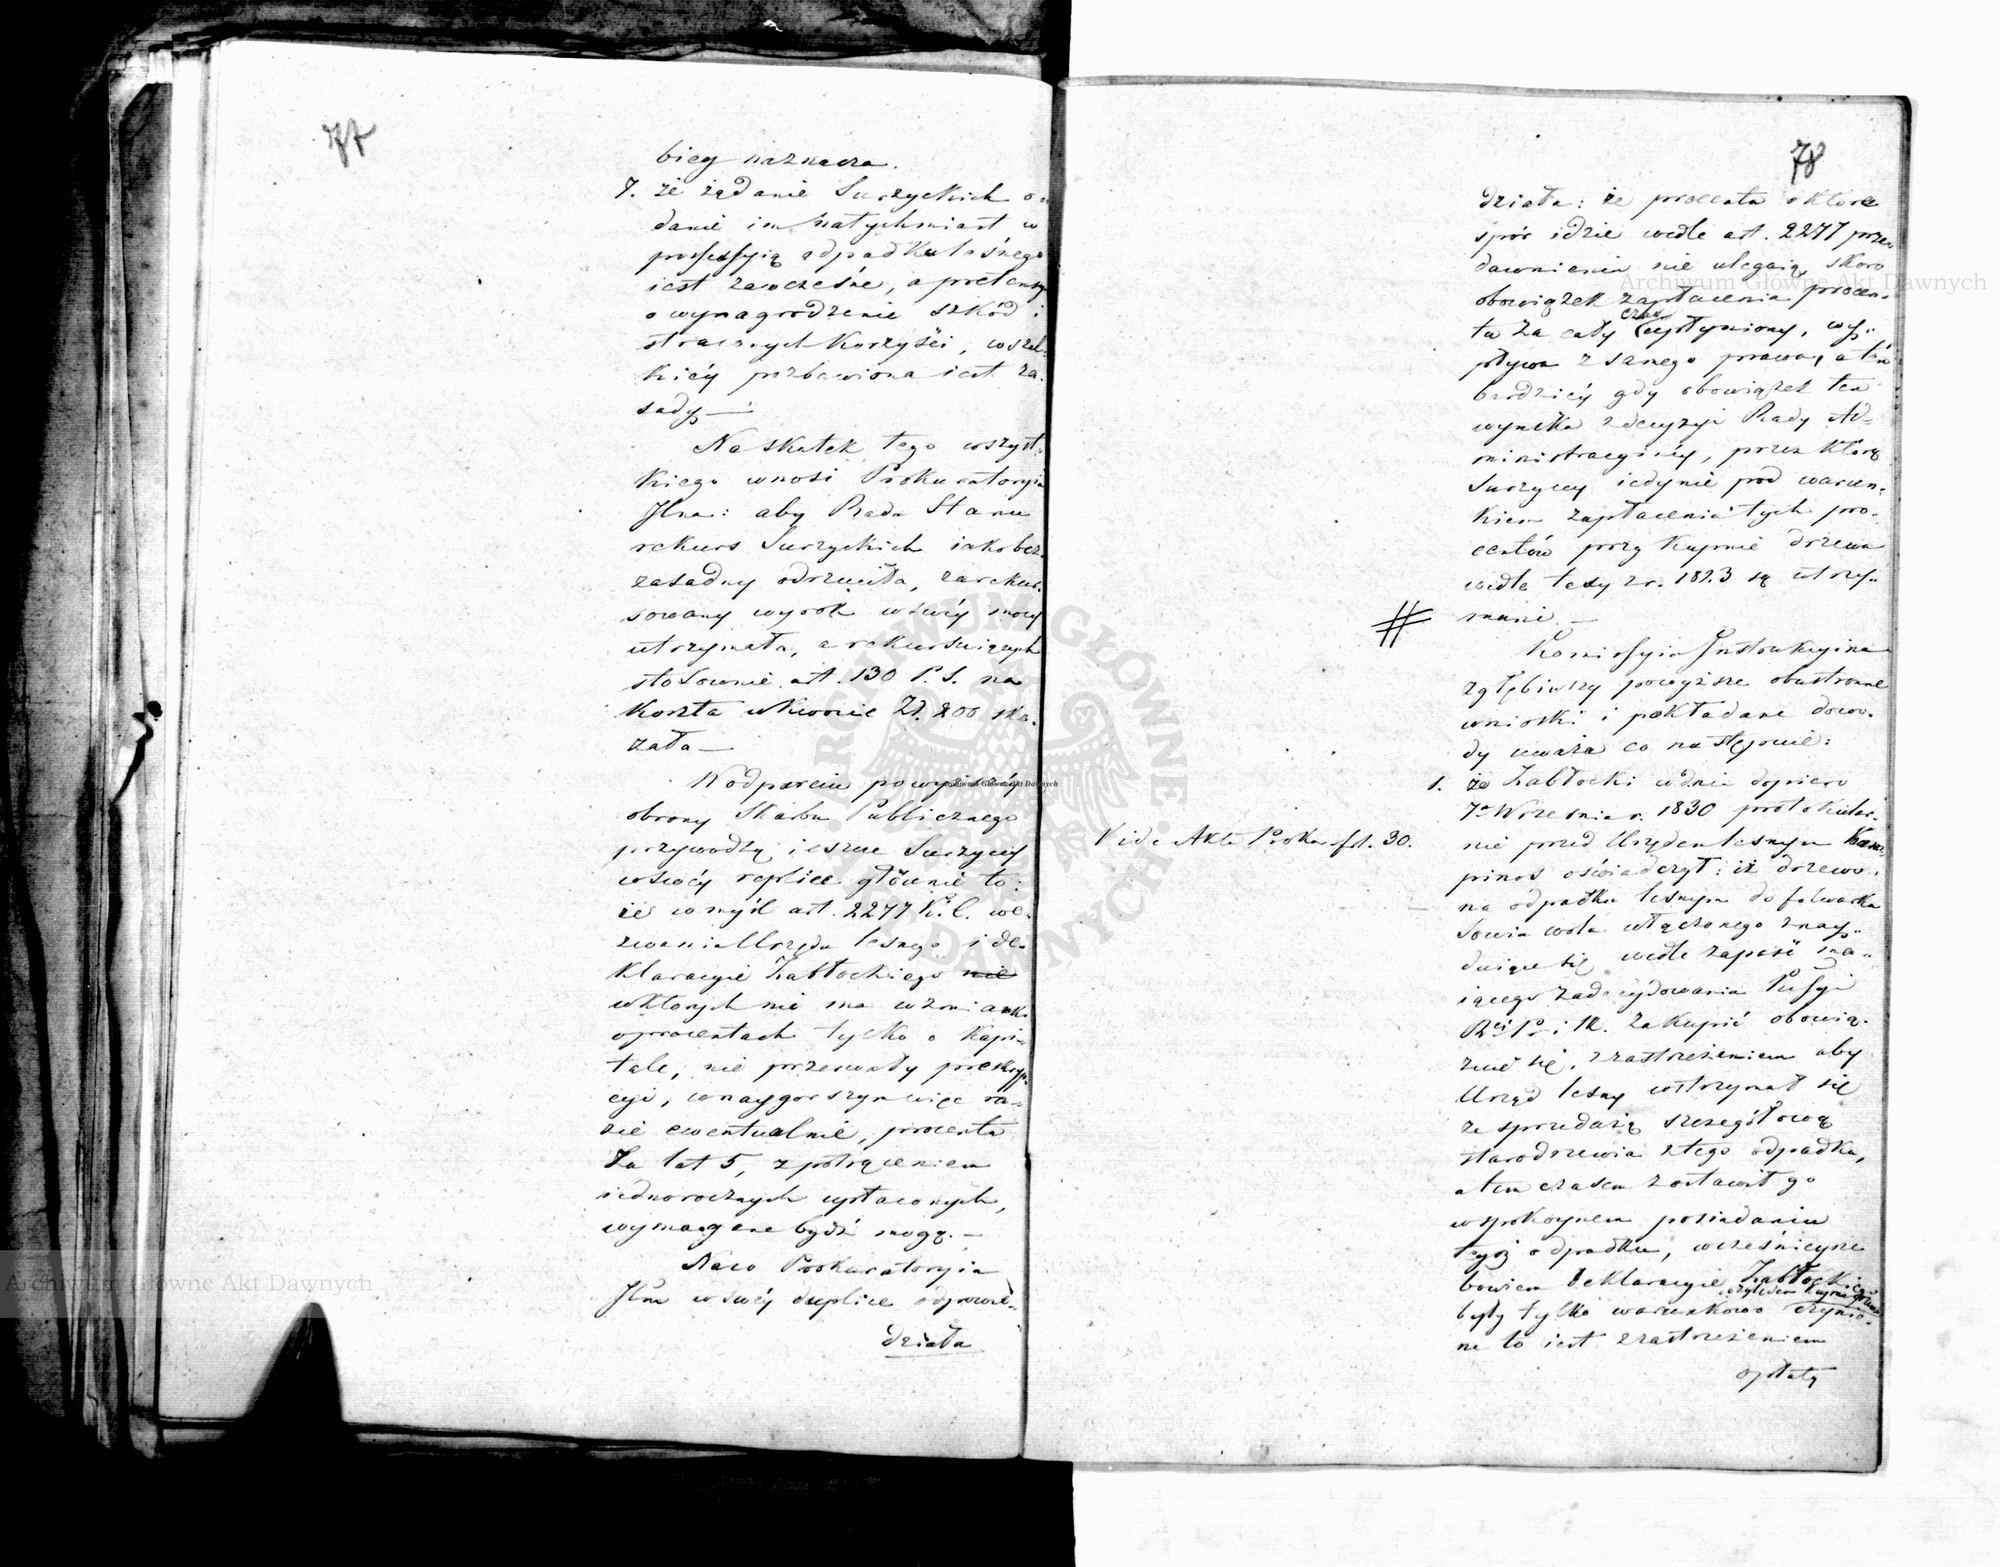 77
bieg naznacza.
7. że żądanie Suszyckich o od-
danie im natychmiast w
possessyią odpadku leśnego
iest zawcześne, a pretensya
o wynagrodzenie szkód i
straconych korzyści, wszel-
kiéy pozbawiona iest za-
sady —
Na skutek tego wszyst-
kiego wnosi Prokuratorya
Jlna: aby Rada Stanu
rekurs Suszyckich iako bez-
zasadny odrzuciła, zarekur-
sowany wyrok w swéy mocy
utrzymała, a rekursuiących
stosownie art. 130 P.S. na
koszta w kwocie Zł. 200 ska-
zała —
W odparciu powyższéy
obrony Skarbu Publicznego
przywodzą ieszcze Suszyccy
w swéy replice głównie to:
że w myśl art. 2277 K.C. we-
zwania Urzędu leśnego i de-
klaracyie Zabłockiego nie
w których nie ma wzmianki
o procentach tylko o kapi-
tale, nie przerwały preskryp-
cyi, w naygorszym więc ra-
zie ewentualnie, procenta
za lat 5, z potrąceniem
iednorocznych wpłaconych,
wymagane bydź mogą. —
Naco Prokuratoryia
Jlna w swéy duplice odpowie-
działa
78
działa: że procenta o które
spór idzie wedle art. 2277 przed
dawnieniu nie ulegaią, skoro
obowiązek zapłacenia procen-
czas
tu za cały upłyniony, wy-
pływa z samego prawa, a tém
bardziéy gdy obowiązek ten
wynika z decyzyi Rady Ad-
ministracyinéy, przez którą
Suszyccy iedynie pod warun-
kiem zapłacenia tych pro-
centów przy kupnie drzewa
wedle taxy z r. 1823 są utrzy-
mani. —
Kommissyia Instrukcyina
zgłębiwszy powyższe obustronne
wnioski i pokładane dowo-
dy uważa co następuie:
1. że Zabłocki w dniu dopiero
7o Września r. 1830 protokular-
nie przed Urzędem leśnym Kam-
pinos oświadczył: iż drzewo
Vide Akta Prokur. fol. 30.
na odpadku leśnym do folwarku
Sowia wola włączonego znay-
duiące się wedle zapaść ma-
iącego zadecydowania
Rei P. i Sk. zakupić obowią-
zuie się, z zastrzeżeniem aby
Urząd leśny wstrzymał się
ze sprzedażą szczegółową
starodrzewia z tego odpadku,
a tem czasem zostawił go
w spokoynem posiadaniu
tegoż odpadku, wcześnieysze
bowiem deklaracyie Zabłockiego
względem kupna drzewa
były tylko warunkowo czynio-
ne to iest z zastrzeżeniem
opłaty